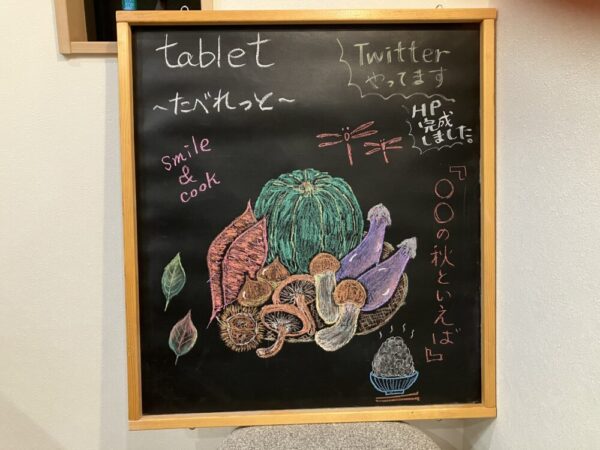 tablet
~たべれっと~
smile
&
cook
Twitter
やってます
HP
完成
しました。
『○○の秋といえば』